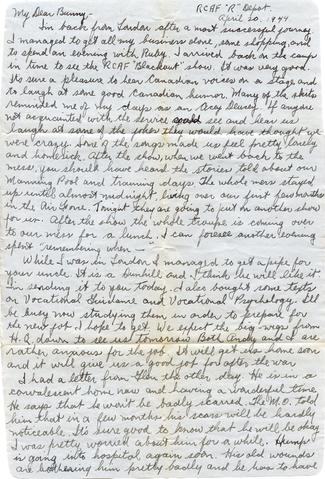 RCAF "R" Depot.
My Dear Bunny:
April 20. 1944
I'm back from London after a most successful journey.
I managed to get all my business done, some shopping, and
to spend an evening with Ruby. I arrived back on the camp
in time to see the RCAF "Blackout" show. It was very good.
Its sure a pleasure to hear Canadian voices on a stage and
to laugh at some good Canadian humor. Many of the skits
reminded me of my days as an Acey Deucey. If anyone
not acquainted with the service could see and hear us
laugh at some of the jokes they would have thought we
were crazy. Some of the songs made us feel pretty lonely
and homesick. After the show, when we went back to the
mess, you should have heard the stories told about our
Manning Pool and Training days. The whole mess stayed
up until almost midnight, living over our first few months
in the Air Force. Tonight they are going to put on another show
for us. After the show the whole troupe is coming over
to our mess for a lunch. I can foresee another evening
spent "remembering when —".
While I was in London I managed to get a pipe for
your uncle. It is a Dunhill and I think he will like it.
I'm sending it to you today. I also bought some texts
on Vocational Guidance and Vocational Psychology. I'll
be busy now studying them in order to prepare for
the new job I hope to get. We expect the big wigs from
H.Q. down to see us tomorrow. Both Andy and I are
rather anxious for the job. It will get us home soon
and it will give us a good job for after the war.
I had a letter from Glen the other day. He is in a
convalescent home now and having a wonderful time.
He says that he won't be badly scarred. The M.O. told
him that in a few months his scars will be hardly
noticeable. Its sure good to know that he will be okay.
I was pretty worried about him for a while. Hump
is going into hospital again soon. His old wounds
are bothering him pretty badly and he has to have